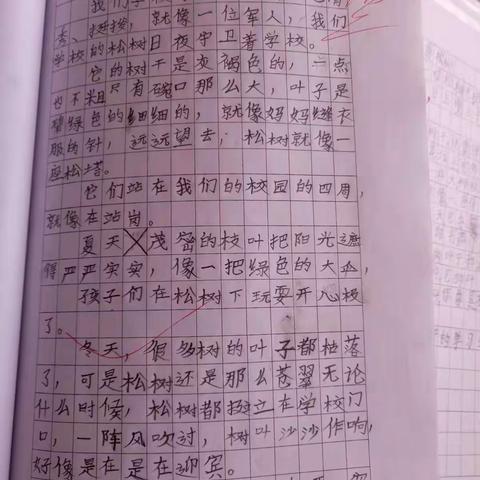 秀、挺拔，就像一位军人，我们
学校的松树日夜守卫着学校。
它的树干是灰褐色的，一点
也不粗只有碗口那么大，叶子是
碧绿色的细细的，就像妈妈缝衣
服的针，远远望去，松树就像一
座松塔。
它们站在我们的校园的四周，
就像在站岗。
夏天茂密的枝叶把阳光遮
得严严实实，像一把绿色的大伞，
孩子们在松树下玩耍开心极
了。
冬天，很多树的叶子都枯落
了，可是松树还是那么苍翠无论
什么时候，松树都挺立在学校门
口，一阵风吹过，树叶沙沙作响，
好像是在是在迎宾。